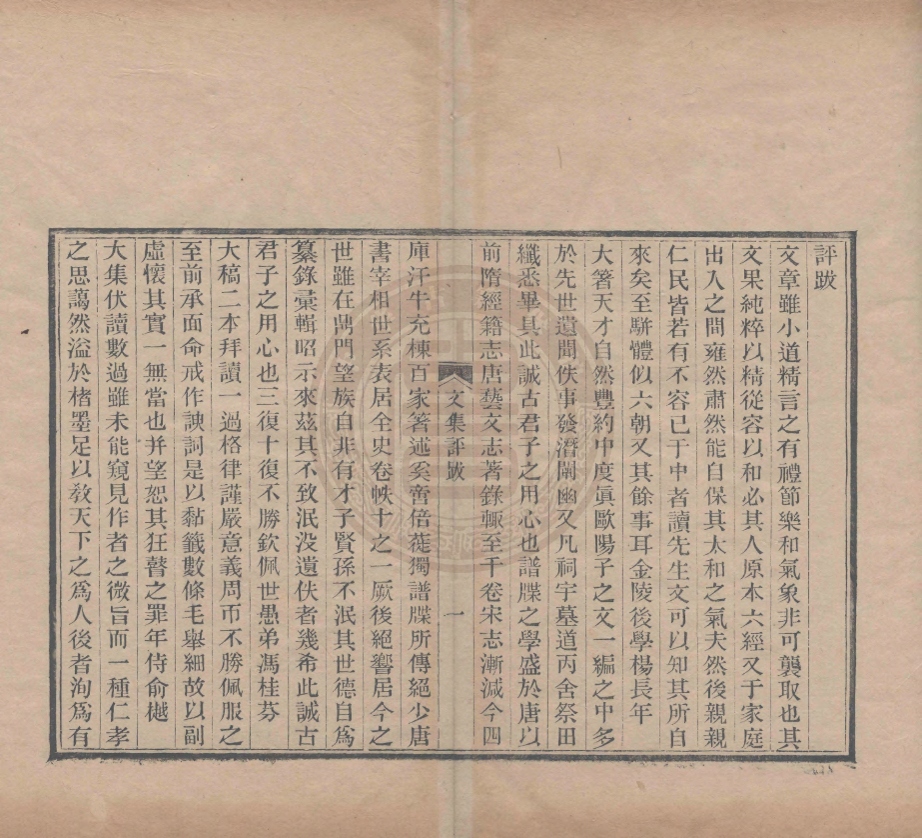 評跋
文章雖小道精言之有禮節樂和氣象非可襲取也其
文果純粹以精從容以和必其人原本六經又于家庭
出入之間雍然肅然能自保其太和之氣夫然後親親
仁民皆若有不容已于中者讀先生文可以知其所自
來矣至駢體似六朝又其餘事耳金陵後學楊長年
大箸天才自然豐約中度眞歐陽子之文一編之中多
於先世遺聞佚事發潛闡幽又凡祠宇墓道丙舍祭田
纖悉畢具此誠古君子之用心也譜牒之學盛於唐以
前隋經籍志唐藝文志著錄輒至千卷宋志漸減今四
文集評跋
一
庫汗牛充棟百家箸述奚啻倍蓰獨譜牒所傳絕少唐
書宰相世系表居全史卷帙十之一厥後絕響居今之
世雖在鼎門望族自非有才子賢孫不泯其世德自爲
纂錄彙輯昭示來茲其不致泯没遺佚者幾希此誠古
君子之用心也三復十復不勝欽佩世愚弟馮桂芬
大稿二本拜讀一過格律謹嚴意義周帀不勝佩服之
至前承面命戒作諛詞是以黏籤數條毛舉細故以副
虛懷其實一無當也并望恕其狂瞽之罪年侍俞樾
大集伏讀數過雖未能窺見作者之微旨而一種仁孝
之思藹然溢於楮墨足以敎天下之爲人後者洵爲有